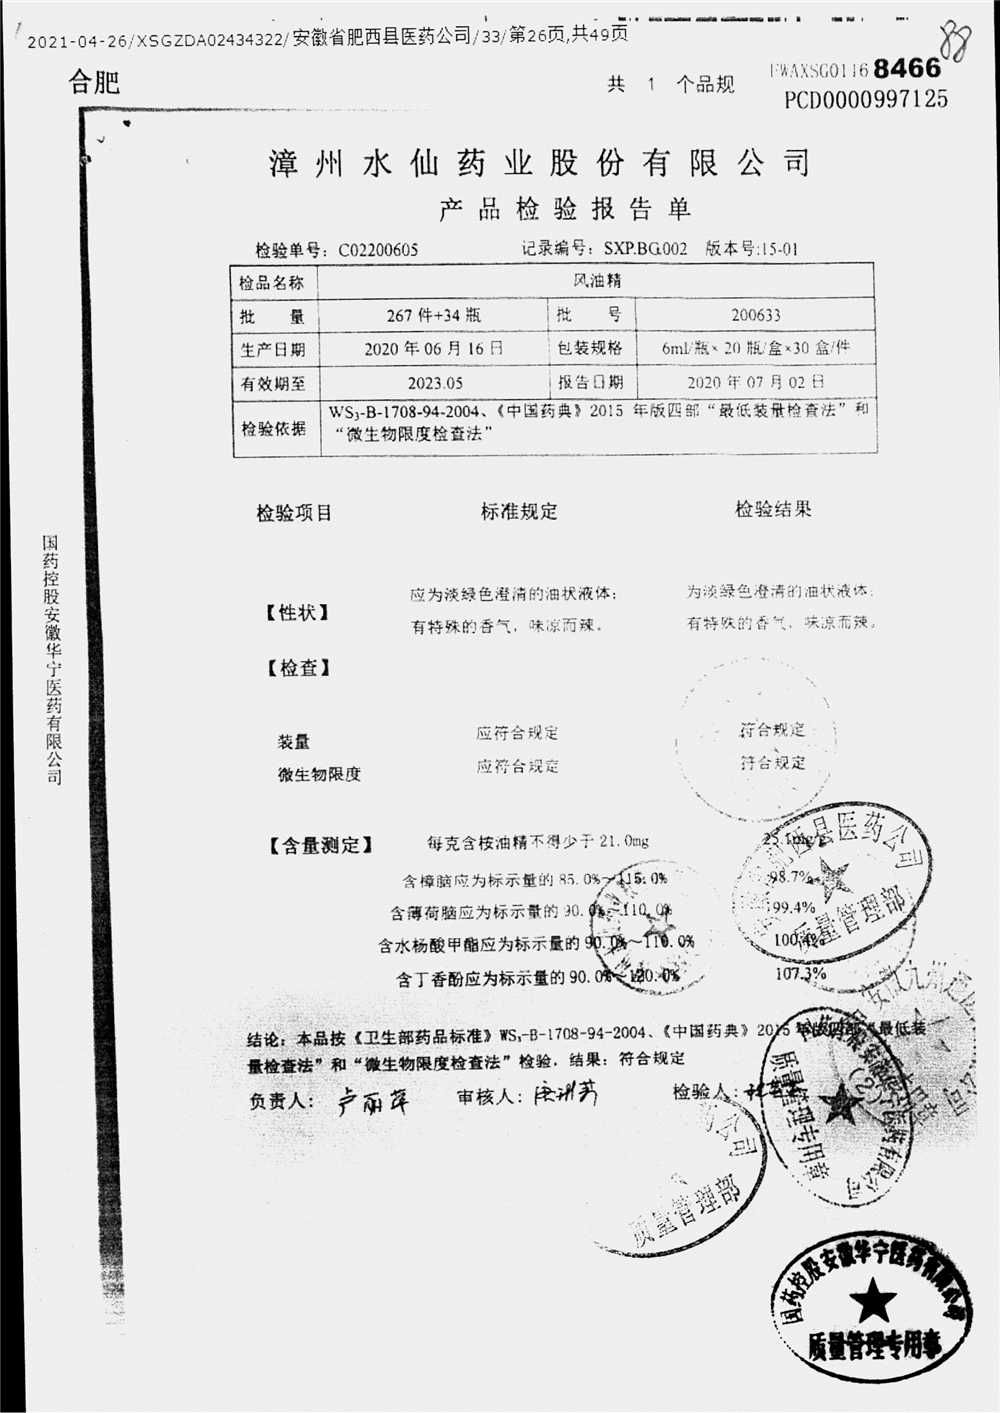 2021-04-26/XSGZDA02434322/安徽省肥西县医药公司/33/第26页,共49页
88
合肥
共 1 个品规
FWAXSG01168466
PCD0000997125
漳州水仙药业股份有限公司
产品检验报告单
检验单号: C02200605 记录编号: SXP.BG.002 版本号:15-01
检品名称 风油精
批 量 267 件+34 瓶 批 号 200633
生产日期 2020 年 06 月 16 日 包装规格 6ml/瓶×20 瓶/盒×30 盒/件
有效期至 2023.05 报告日期 2020 年 07 月 02 日
检验依据 WS₃-B-1708-94-2004、《中国药典》2015 年版四部“最低装量检查法”和
“微生物限度检查法”
检验项目 标准规定 检验结果
【性状】 应为淡绿色澄清的油状液体; 为淡绿色澄清的油状液体;
有特殊的香气, 味凉而辣。 有特殊的香气, 味凉而辣。
【检查】
装量 应符合规定 符合规定
微生物限度 应符合规定 符合规定
【含量测定】 每克含桉油精不得少于 21.0mg 25.1mg
含樟脑应为标示量的 85.0%~115.0% 98.7%
含薄荷脑应为标示量的 90.0%~110.0% 99.4%
含水杨酸甲酯应为标示量的 90.0%~110.0% 100.4%
含丁香酚应为标示量的 90.0%~120.0% 107.3%
结论: 本品按《卫生部药品标准》WS₃-B-1708-94-2004、《中国药典》2015 年版四部“最低装
量检查法”和“微生物限度检查法”检验, 结果: 符合规定
负责人: 卢丽萍 审核人: 检验人:
国药控股安徽华宁医药有限公司
肥西县医药公司
质量管理部
安徽九州通
国药控股安徽华宁医药有限公司
质量管理专用章
(2)
公司
质量管理部
国药控股安徽华宁医药有限公司
质量管理专用章